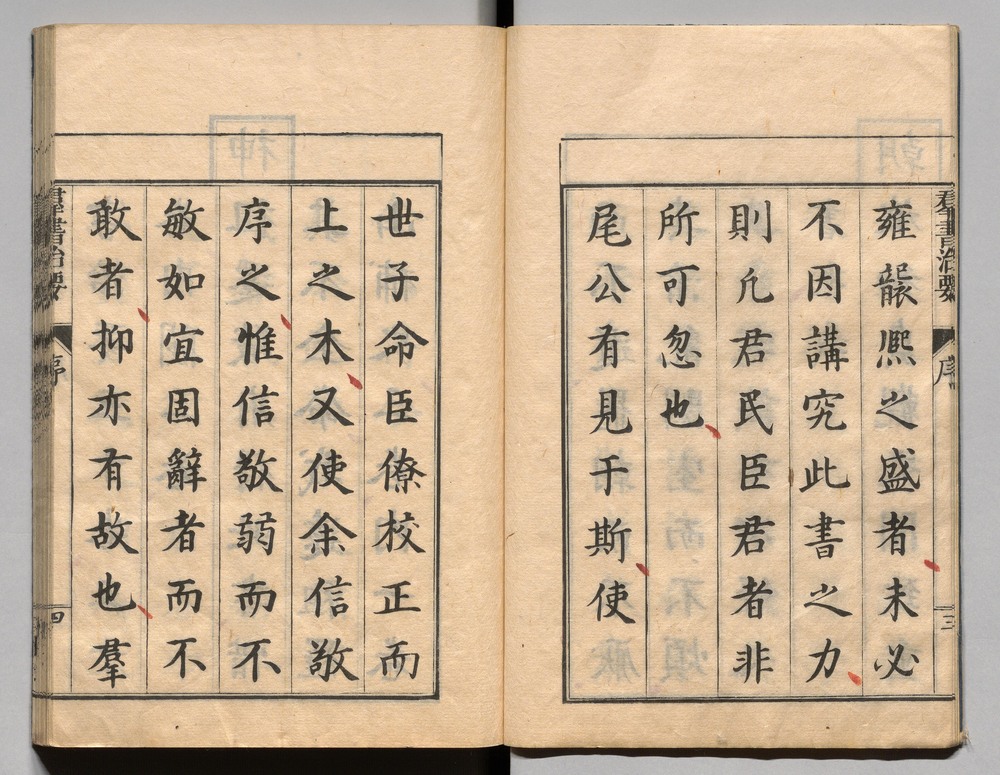 羣書治要
序
三
雍襲熈之盛者未必
不因講究此書之力
則凡君民臣君者非
所可忽也
尾公有見于斯使
世子命臣僚校正而
上之木又使余信敬
序之惟信敬弱而不
敏如宜固辭者而不
敢者抑亦有故也羣
羣書治要
序
四